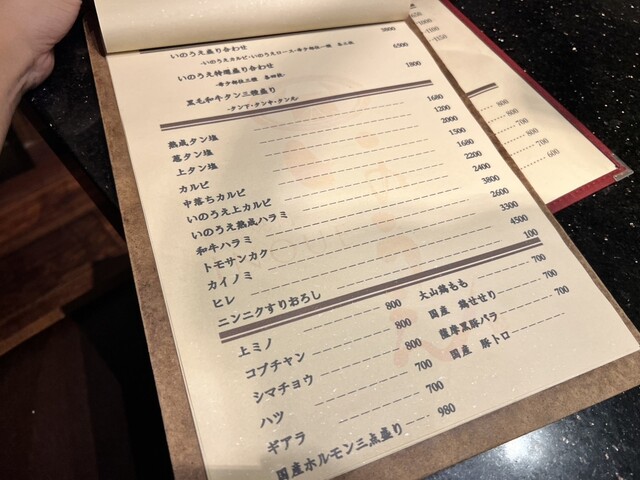 いのうえ盛り合わせ 3800
-いのうえカルビ・いのうえロース・希少部位一種 各二枚-
いのうえ特選盛り合わせ 6900
-希少部位三種 各四枚-
黒毛和牛タン三種盛り 1800
-タン下・タンサキ・タン元-
熟成タン塩 1680
葱タン塩 1200
上タン塩 2000
カルビ 1500
中落ちカルビ 1680
いのうえ上カルビ 2200
いのうえ熟成ハラミ 2400
和牛ハラミ 3800
トモサンカク 2600
カイノミ 3300
ヒレ 4500
ニンニクすりおろし 100
上ミノ 800
コプチャン 800
シマチョウ 800
ハツ 700
ギアラ 700
国産ホルモン三点盛り 980
大山鶏もも 700
国産 鶏せせり 700
薩摩黒豚バラ 700
国産 豚トロ
1000
1100
1150
800
800
700
800
700
600